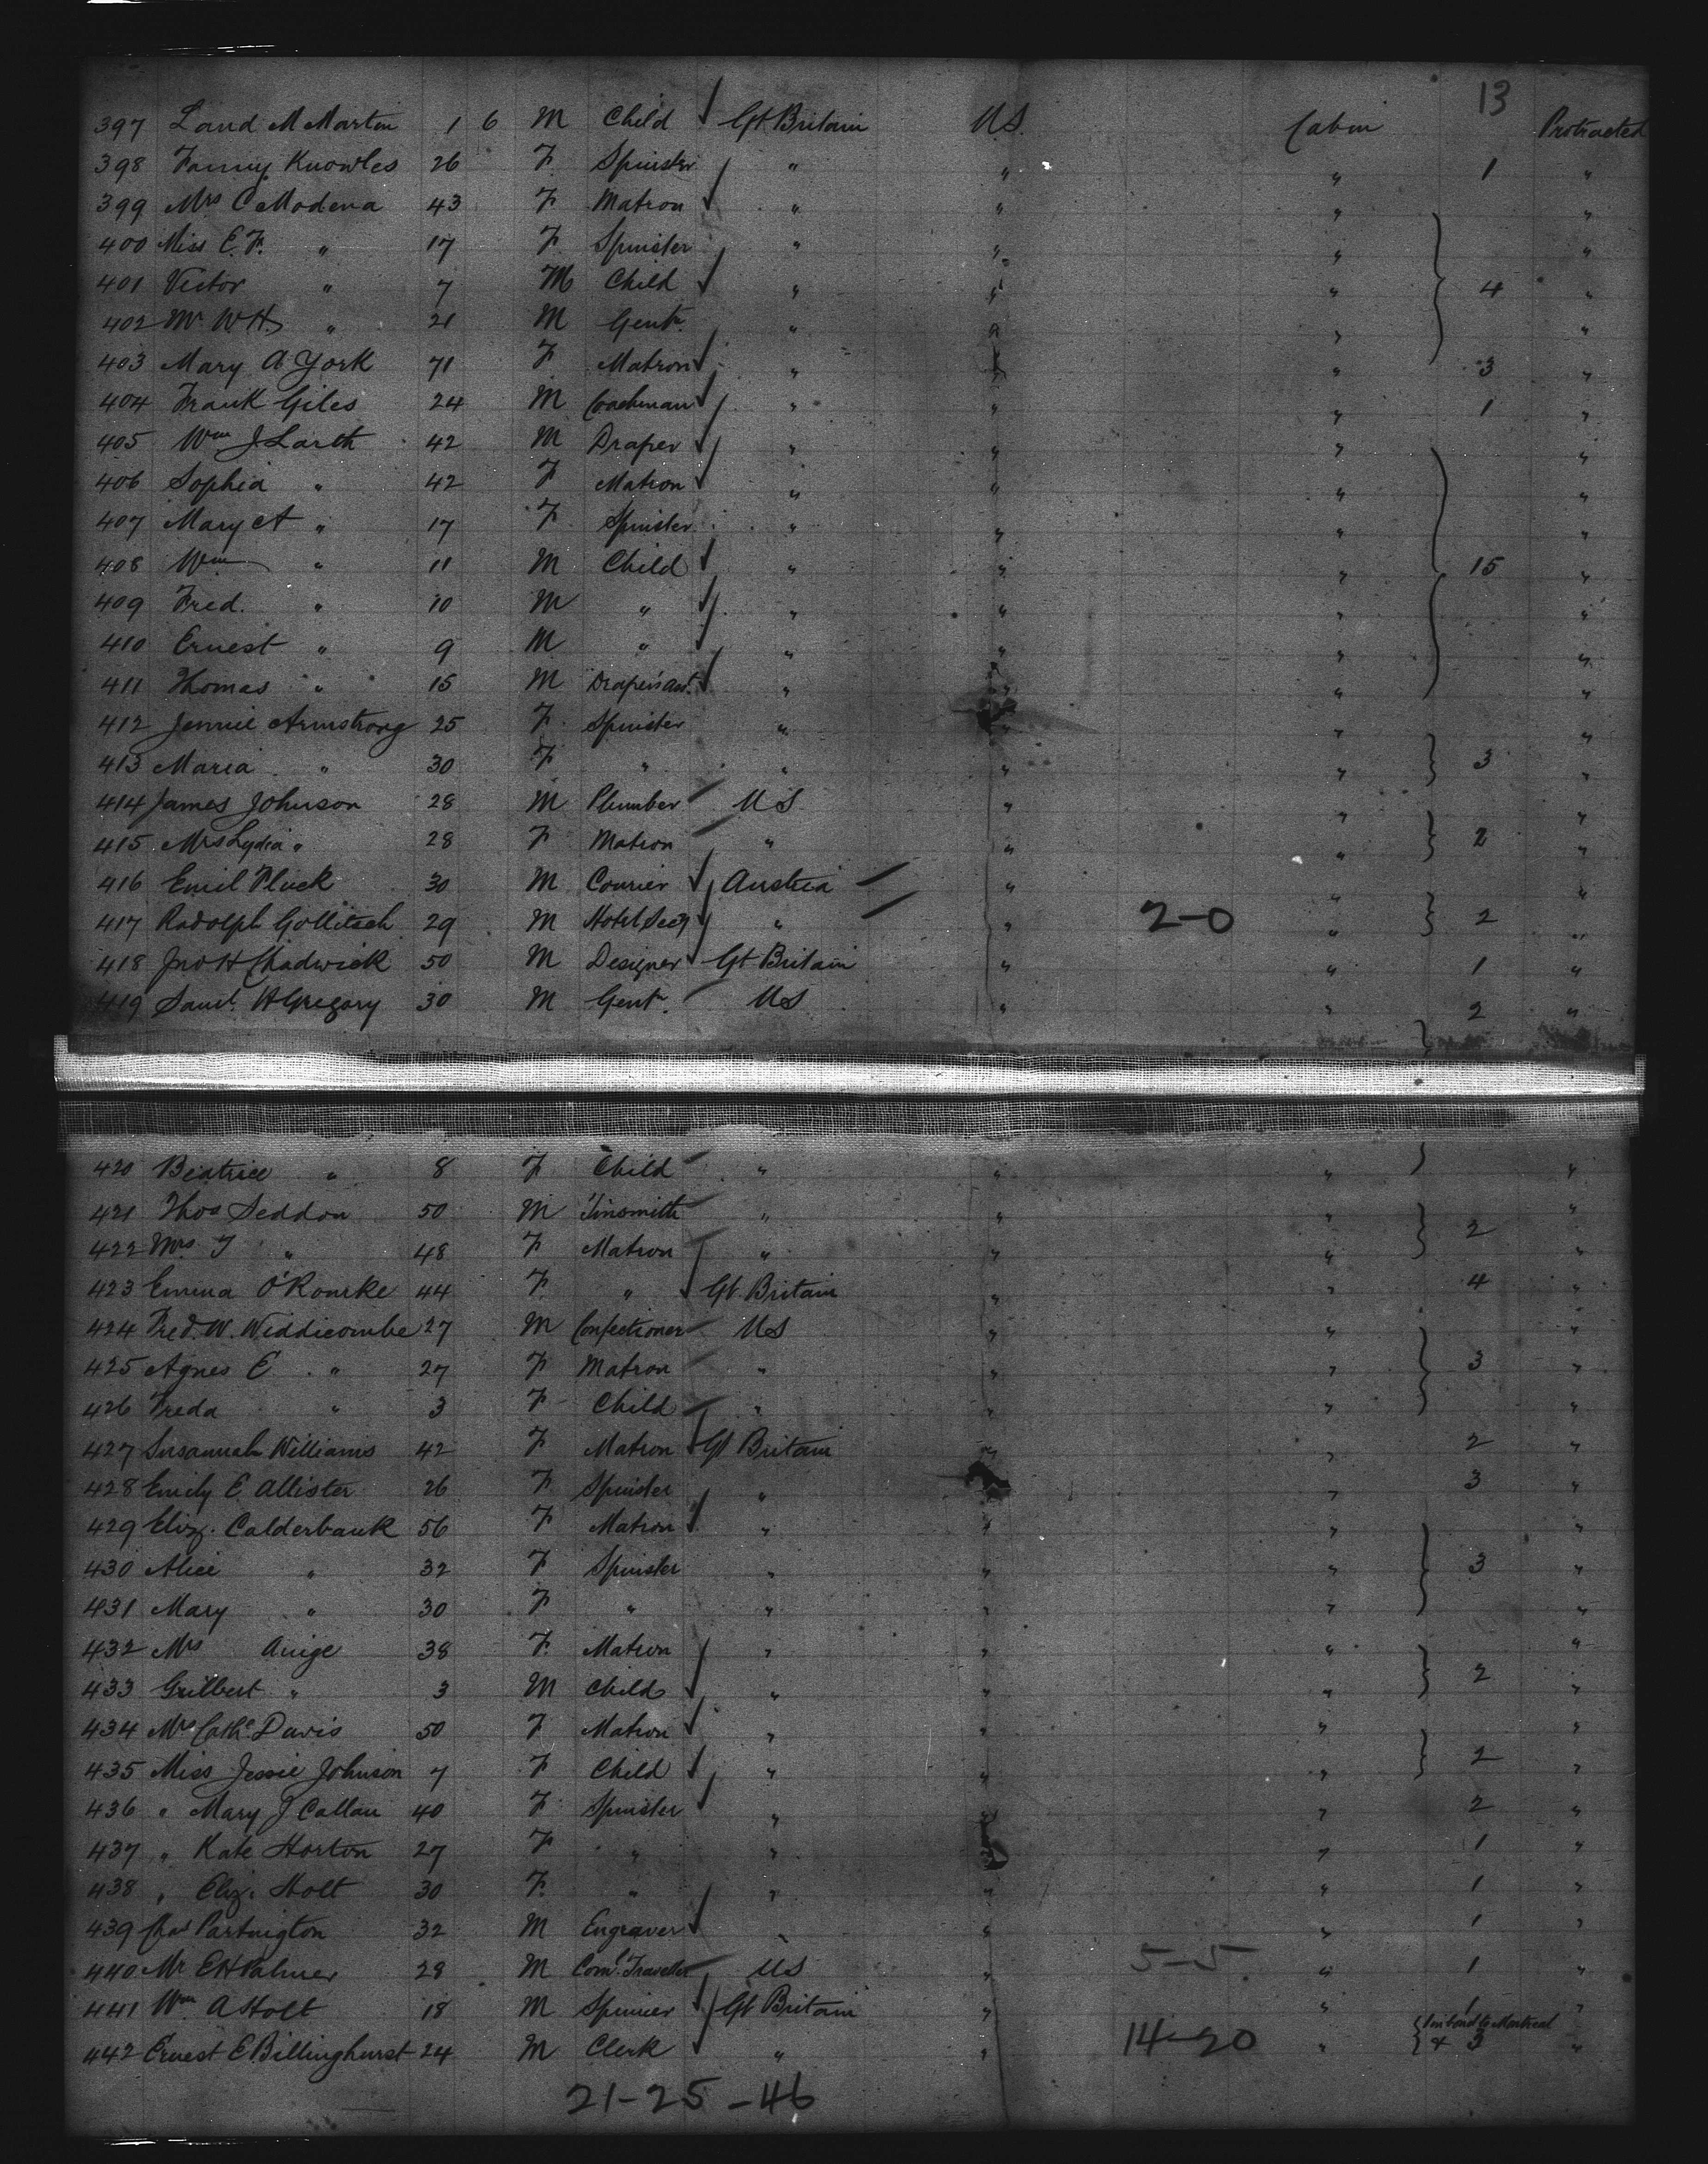 13
397 Land M Martin 1 6 M Child Gt Britain U.S. Cabin Protracted
398 Fanny Knowles 26 F Spinster " " " 1 "
399 Mrs C Modena 43 F Matron " " " "
400 Miss E. F. " 17 F Spinster " " " "
401 Victor " 7 M Child " " " 4 "
402 Mr W H " 21 M Gent. " " " "
403 Mary A York 71 F Matron " " " 3 "
404 Frank Giles 24 M Coachman " " " 1 "
405 Wm J Larth 42 M Draper " " " "
406 Sophia " 42 F Matron " " " "
407 Mary A " 17 F Spinster " " " "
408 Wm " 11 M Child " " " 15 "
409 Fred. " 10 M " " " " "
410 Ernest " 9 M " " " " "
411 Thomas " 15 M Draper's Ast. " " " "
412 Jennie Armstrong 25 F Spinster " " " "
413 Maria " 30 F " " " " 3 "
414 James Johnson 28 M Plumber U S " " "
415 Mrs Lydia " 28 F Matron " " " 2 "
416 Emil Pluck 30 M Courier Austria " " "
417 Rudolph Gollitsch 29 M Hotel Secy " " 2-0 " 2 "
418 Jno H Chadwick 50 M Designer Gt Britain " " 1 "
419 Saml. H Gregory 30 M Gent. U S " " 2 "
420 Beatrice " 8 F Child " " " "
421 Thos Seddon 50 M Tinsmith " " " "
422 Mrs T " 48 F Matron " " " 2 "
423 Emma O'Rourke 44 F " Gt. Britain " " 4 "
424 Fred. W. Widdicombe 27 M Confectioner U S " " "
425 Agnes E " 27 F Matron " " " 3 "
426 Freda " 3 F Child " " " "
427 Susannah Williams 42 F Matron Gt Britain " " 2 "
428 Emily E Allister 26 F Spinster " " " 3 "
429 Eliz. Calderbank 56 F Matron " " " "
430 Alice " 32 F Spinster " " " 3 "
431 Mary " 30 F " " " " "
432 Mrs Auige 38 F Matron " " " "
433 Guilbert " 3 M Child " " " 2 "
434 Mrs Cathe Davis 50 F Matron " " " "
435 Miss Jessie Johnson 7 F Child " " " 2 "
436 " Mary J Callan 40 F Spinster " " " 2 "
437 " Kate Horton 27 F " " " " 1 "
438 " Eliz. Holt 30 F " " " " 1 "
439 Chas Partington 32 M Engraver " " " 1 "
440 Mr E H Palmer 28 M Coml. Traveller U S " 5-5 " 1 "
441 Wm A Holt 18 M Spinner Gt Britain " " 1 "
442 Ernest E Billinghurst 24 M Clerk " " 14-20 " 1 in bond to Montreal & 3 "
21-25-46